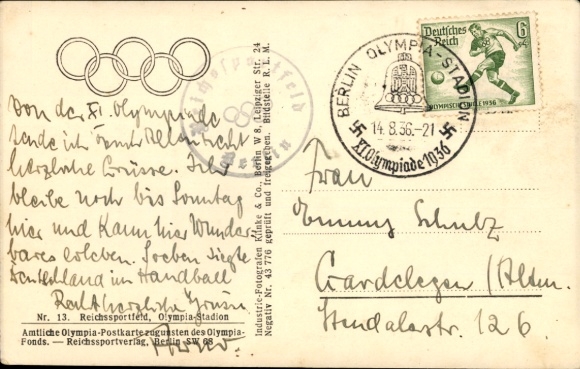 Von der XI. Olympiade
sende ich
herzliche Grüsse. Ich
bleibe noch bis Sonntag
hier und kann hier Wunder-
bares erleben. Soeben siegte
Deutschland im Handball
Recht herzliche Grüsse
Nr. 13. Reichssportfeld, Olympia-Stadion
Amtliche Olympia-Postkarte zugunsten des Olympia-
Fonds. — Reichssportverlag, Berlin SW 68
Reichssportfeld
Berlin
Industrie-Fotografen Klinke & Co., Berlin W 8, Leipziger Str. 24
Negativ Nr. 43 776 geprüft und freigegeben. Bildstelle R. L. M.
BERLIN OLYMPIA-STADION
14.8.36.-21
XI. Olympiade 1936
Deutsches
Reich
6
OLYMPISCHE SPIELE 1936
Frau
Emmy Schulz
Gardelegen / Altm.
Stendalerstr. 126